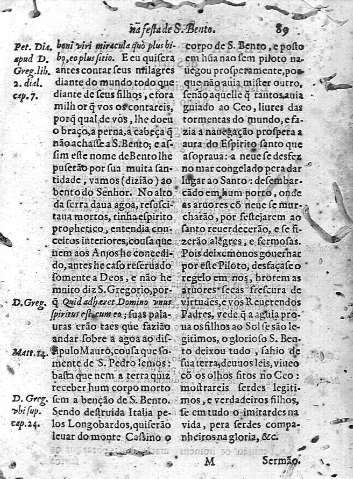 na festa de S. Bento.
89
Pet. Dia.
apud D.
Greg. lib.
2. dial.
cap. 7.
D. Greg.
Matt. 14.
D. Greg.
vbi sup.
cap. 24.
boni viri miracula quò plus bi-
bo, eo plus sitio. E eu quisera
antes contar seus milagres
diante do mundo todo que
diante de seus filhos, e fora
milhor q̃ vos os contareis,
porq̃ qual de vòs, lhe doeu
o braço, a perna, a cabeça q̃
não achasse a S. Bento; e as-
sim este nome de Bento lhe
puserão por sua muita san-
tidade, vamos (dizião) ao
bento do Senhor. No alto
da serra daua agoa, resusci-
taua mortos, tinha espirito
prophetico, entendia con-
ceitos interiores, cousa que
nem aos Anjos he concedi-
do, antes he caso reseruado
somente a Deos, e não he
muito diz S. Gregorio, por-
q̃ Quid adhæret Domino vnus
spiritus est cum eo; suas pala-
uras erão taes que fazião
andar sobre a agoa ao dis-
sipulo Mauro, cousa que so-
mente de S. Pedro lemos:
basta que nem a terra quiz
receber hum corpo morto
sem a benção de S. Bento.
Sendo destruida Italia pe-
los Longobardos, quiserão
leuar do monte Cassino o
corpo de S. Bento, e posto
em hũa nao sem piloto na-
uegou prosperamente, por-
que não auia mister outro,
senão aquelle q̃ tantos auia
guiado ao Ceo, liures das
tormentas do mundo, e fa-
zia a nauegação prospera a
aura do Espirito santo que
assopraua: a neue se desfez
no mar congelado pera dar
lugar ao Santo: desembar-
cado em hum porto, onde
as aruores cõ neue se mur-
charão, por festejarem ao
santo reuerdecerão, e se fi-
zerão alegres, e fermosas.
Pois deixemonos gouernar
por este Piloto, desfaçase o
regelo em nòs, brotem as
aruores secas frescura de
virtudes, e vos Reuerendos
Padres, vede q̃ a aguia pro-
ua os filhos ao Sol se são le-
gitimos, o glorioso S. Ben-
to deixou tudo, sahio de
sua terra, deu nos leis, viueo
cõ os olhos fitos no Ceo:
mostrareis serdes legiti-
mos, e verdadeiros filhos,
se em tudo o imitardes na
vida, pera serdes compa-
nheiros na gloria, &c.
M
Sermão.